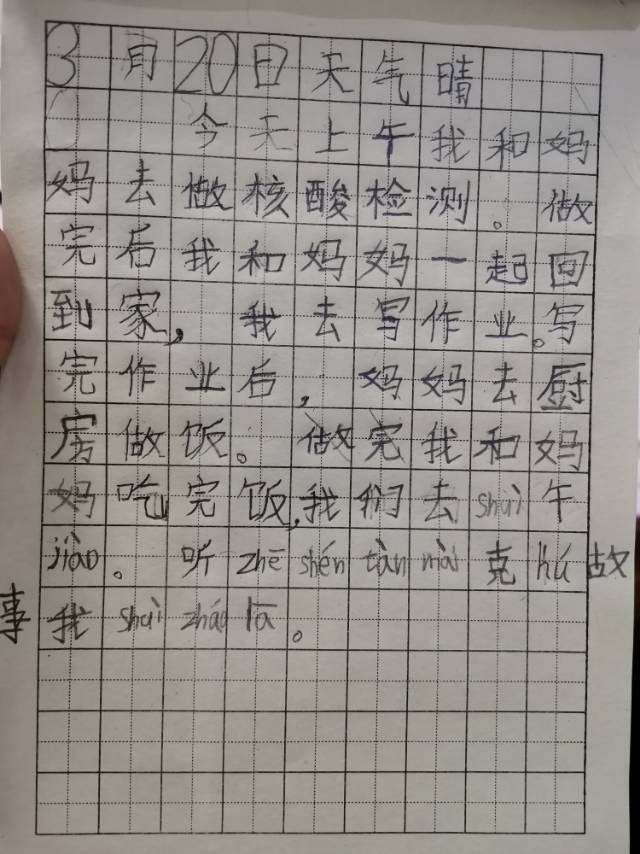 3月20日天气晴
今天上午我和妈
妈去做核酸检测。做
完后我和妈妈一起回
到家，我去写作业。写
完作业后，妈妈去厨
房做饭。做完我和妈
妈吃完饭，我们去shuì午
jiào。听zhē shén tàn mài克hú故
事我shuì zháo lā。